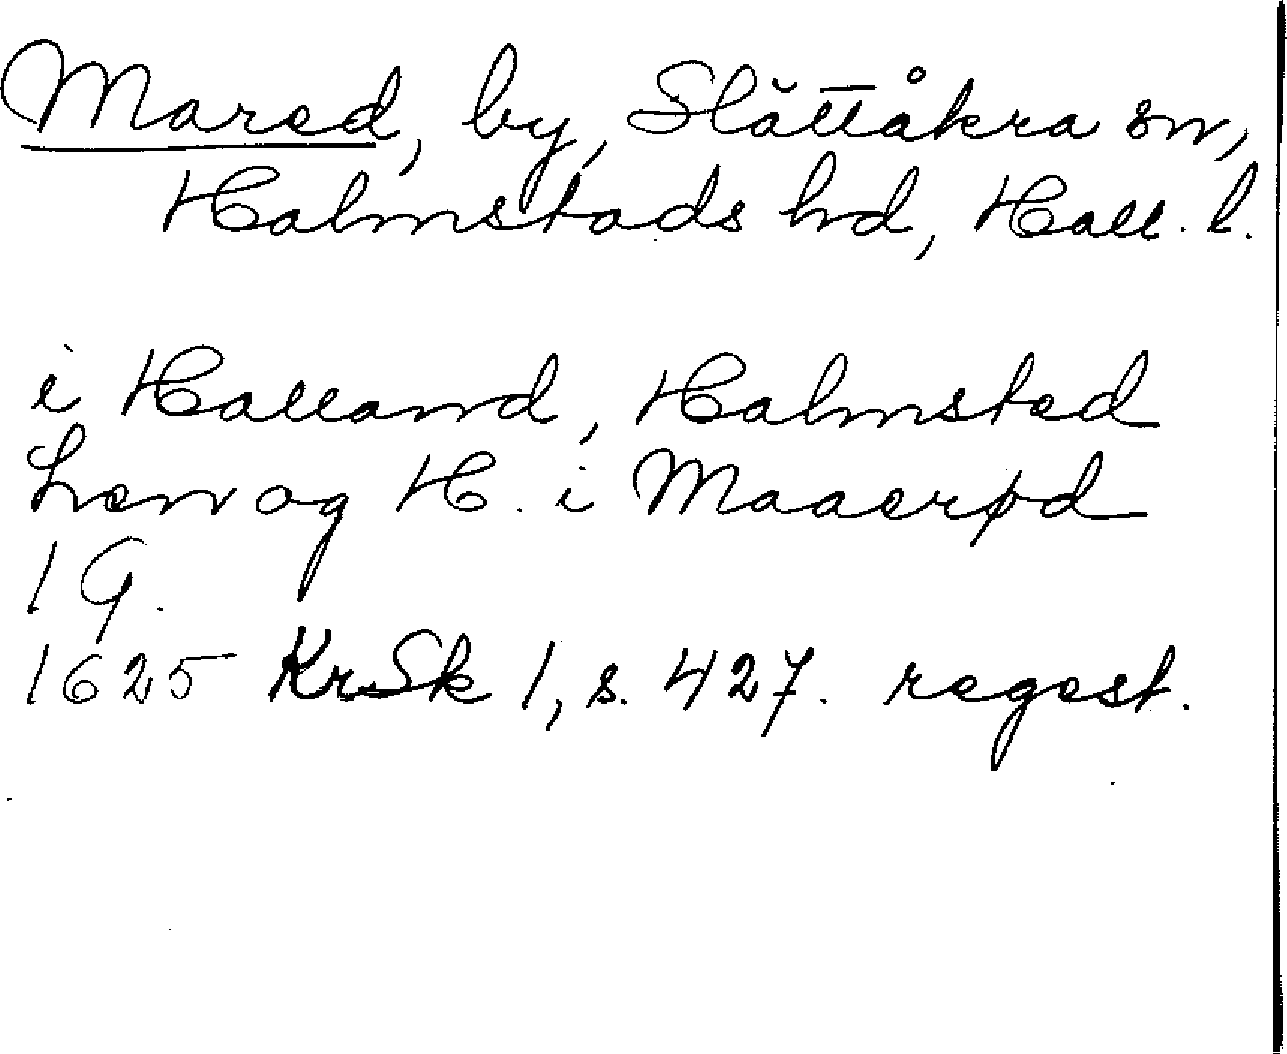 Mared, by, Slättåkra sn,
Halmstads hd, Hall. l.
i Halland, Halmsted
Len og H. i Maaerød
1 G.
1625 KrSk 1, s. 427. regest.